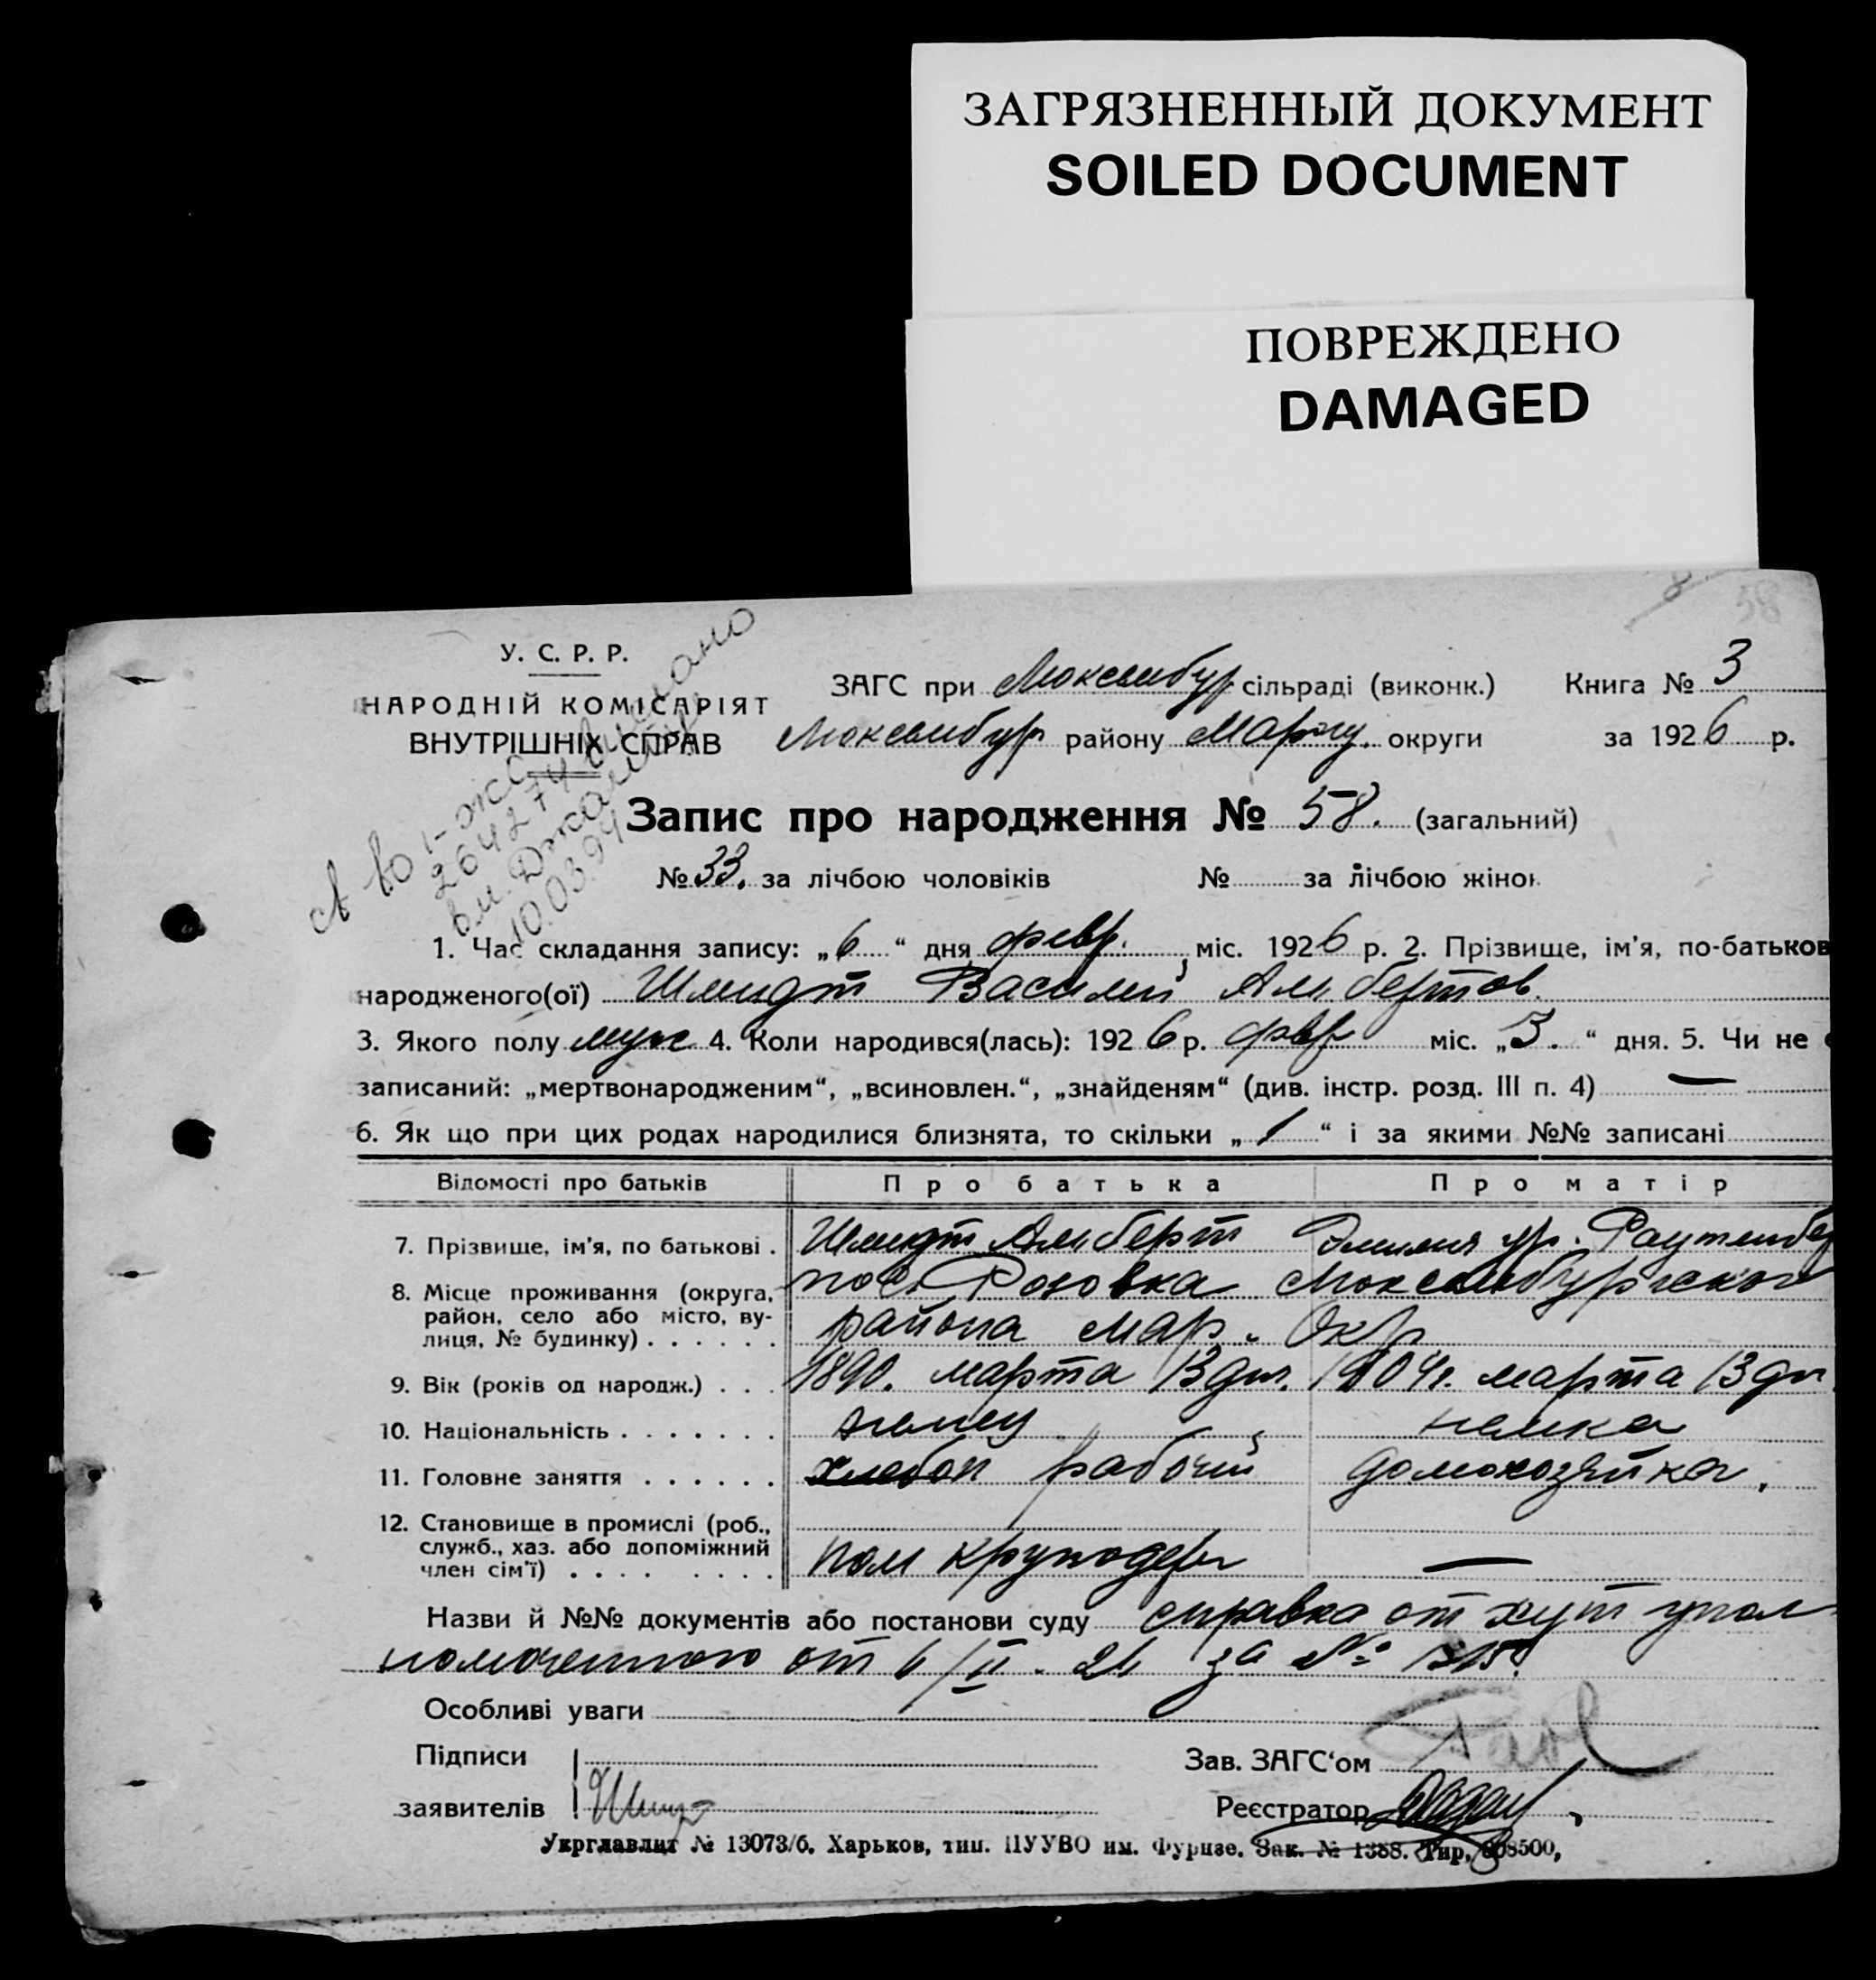 ЗАГРЯЗНЕННЫЙ ДОКУМЕНТ
SOILED DOCUMENT
ПОВРЕЖДЕНО
DAMAGED
58
У. С. Р. Р.
НАРОДНІЙ КОМІСАРІЯТ
ВНУТРІШНІХ СПРАВ
ЗАГС при Люксембур сільраді (виконк.) Книга № 3
Люксембур району Мариу. округи за 1926 р.
264274
10.03.94
Запис про народження № 58. (загальний)
№ 33. за лічбою чоловіків № за лічбою жінок
1. Час складання запису: „6“ дня февр. міс. 1926 р. 2. Прізвище, ім’я, по-батьков
народженого(ої) Шмидт Василий Альбертов.
3. Якого полу муж 4. Коли народився(лась): 1926 р. февр міс. „3.“ дня. 5. Чи не
записаний: „мертвонародженим“, „всиновлен.“, „знайденям“ (див. інстр. розд. III п. 4) —
6. Як що при цих родах народилися близнята, то скільки „ / “ і за якими №№ записані
Відомості про батьків Про батька Про матір
7. Прізвище, ім’я, по батькові . Шмидт Альберт Эмилия ур. Раутенбер
8. Місце проживання (округа, район, село або місто, вулиця, № будинку) . . . . . . пос. Розовка Люксембургского
района Мар. Окр
9. Вік (років од народж.) . . . 1890. марта 13 дн. 1904 г. марта 13 дн.
10. Національність . . . . . . . немец немка
11. Головне заняття . . . . . . хлебоп рабочий домохозяйка.
12. Становище в промислі (роб.,
служб., хаз. або допоміжний
член сім’ї) . . . . . . . . пом круподер —
Назви й №№ документів або постанови суду справка от хут упол
номоченного от 6/II. 26 за №
Особливі уваги
Підписи Зав. ЗАГС‘ом
заявителів Реєстратор
Укрглавлит № 13073/б. Харьков, тип. ПУУВО им. Фрунзе. Зак. № 1388. Тир. 608500,